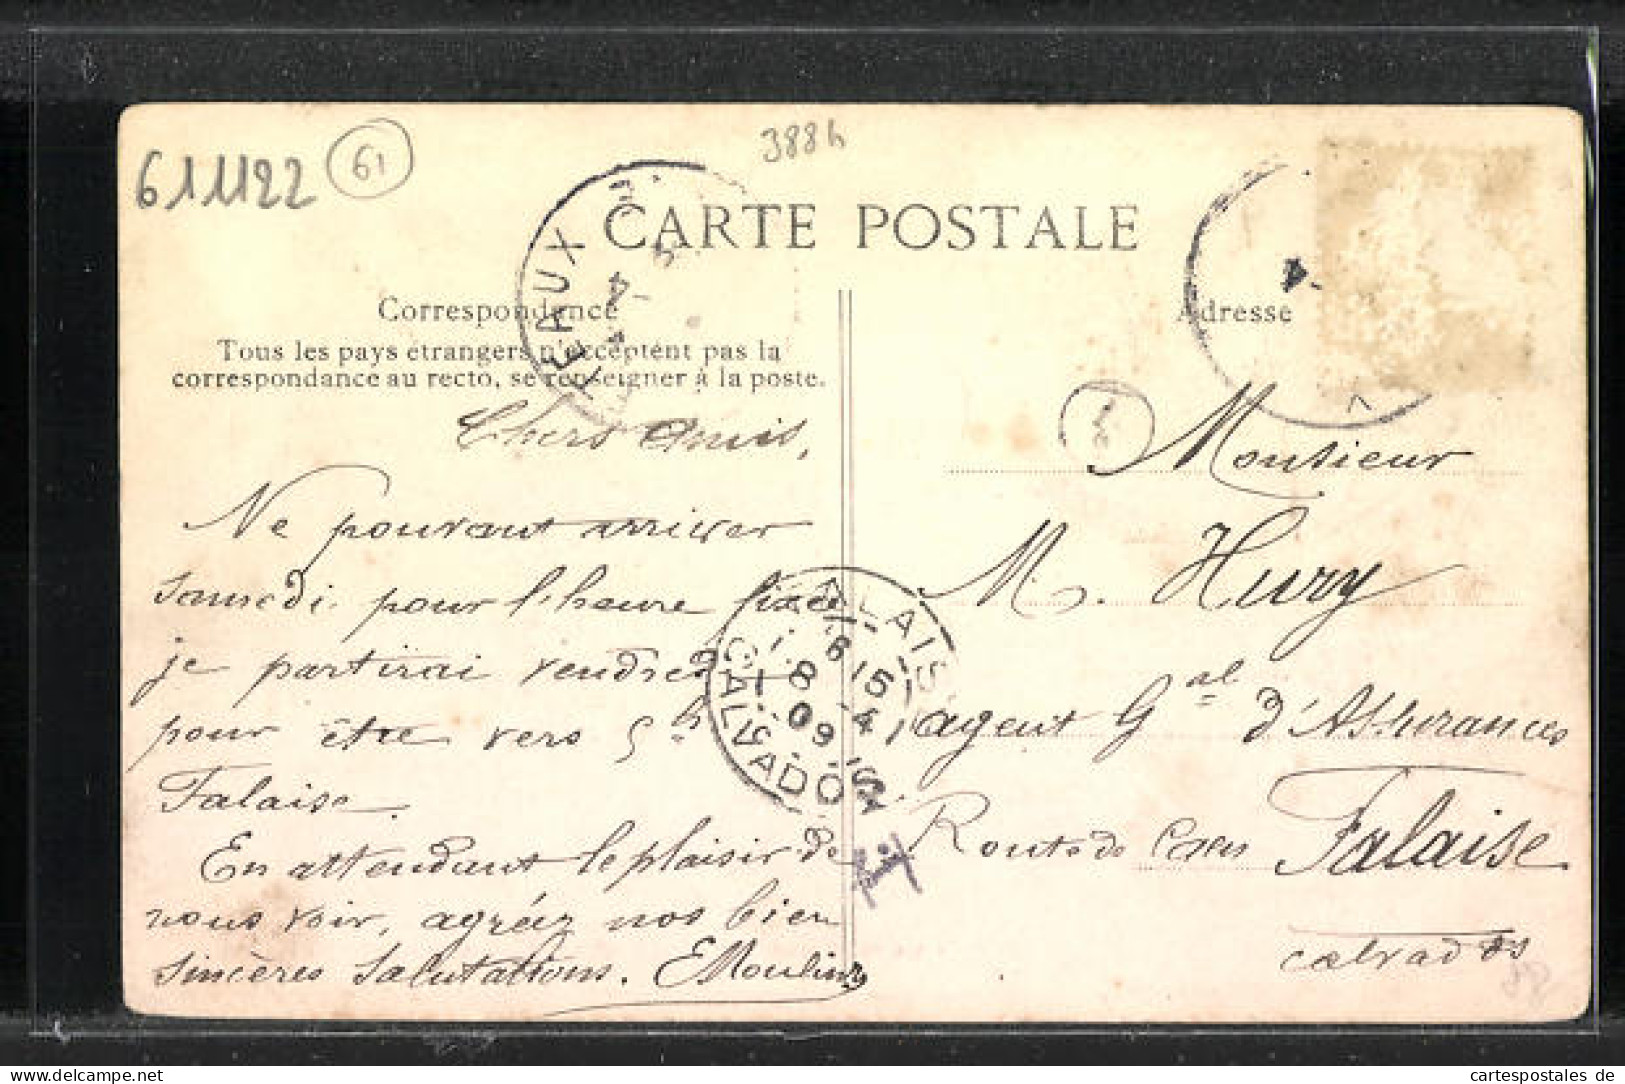 611122
61
388h
CARTE POSTALE
Correspondance
Tous les pays etrangers n'acceptent pas la
correspondance au recto, se renseigner à la poste.
Adresse
Chers Amis,
Ne pouvant arriver
samedi pour l'heure fixée
je partirai vendredi
pour être vers 5h à
Falaise.
En attendant le plaisir de
vous voir, agréez nos bien
sincères salutations. EMoulin
Monsieur
M. Hury
agent Gal d'Assurances
Route de Caen Falaise
calvados
FALAISE
6 15
8 -4
09
CALVADOS
-4
T
cartespostales de